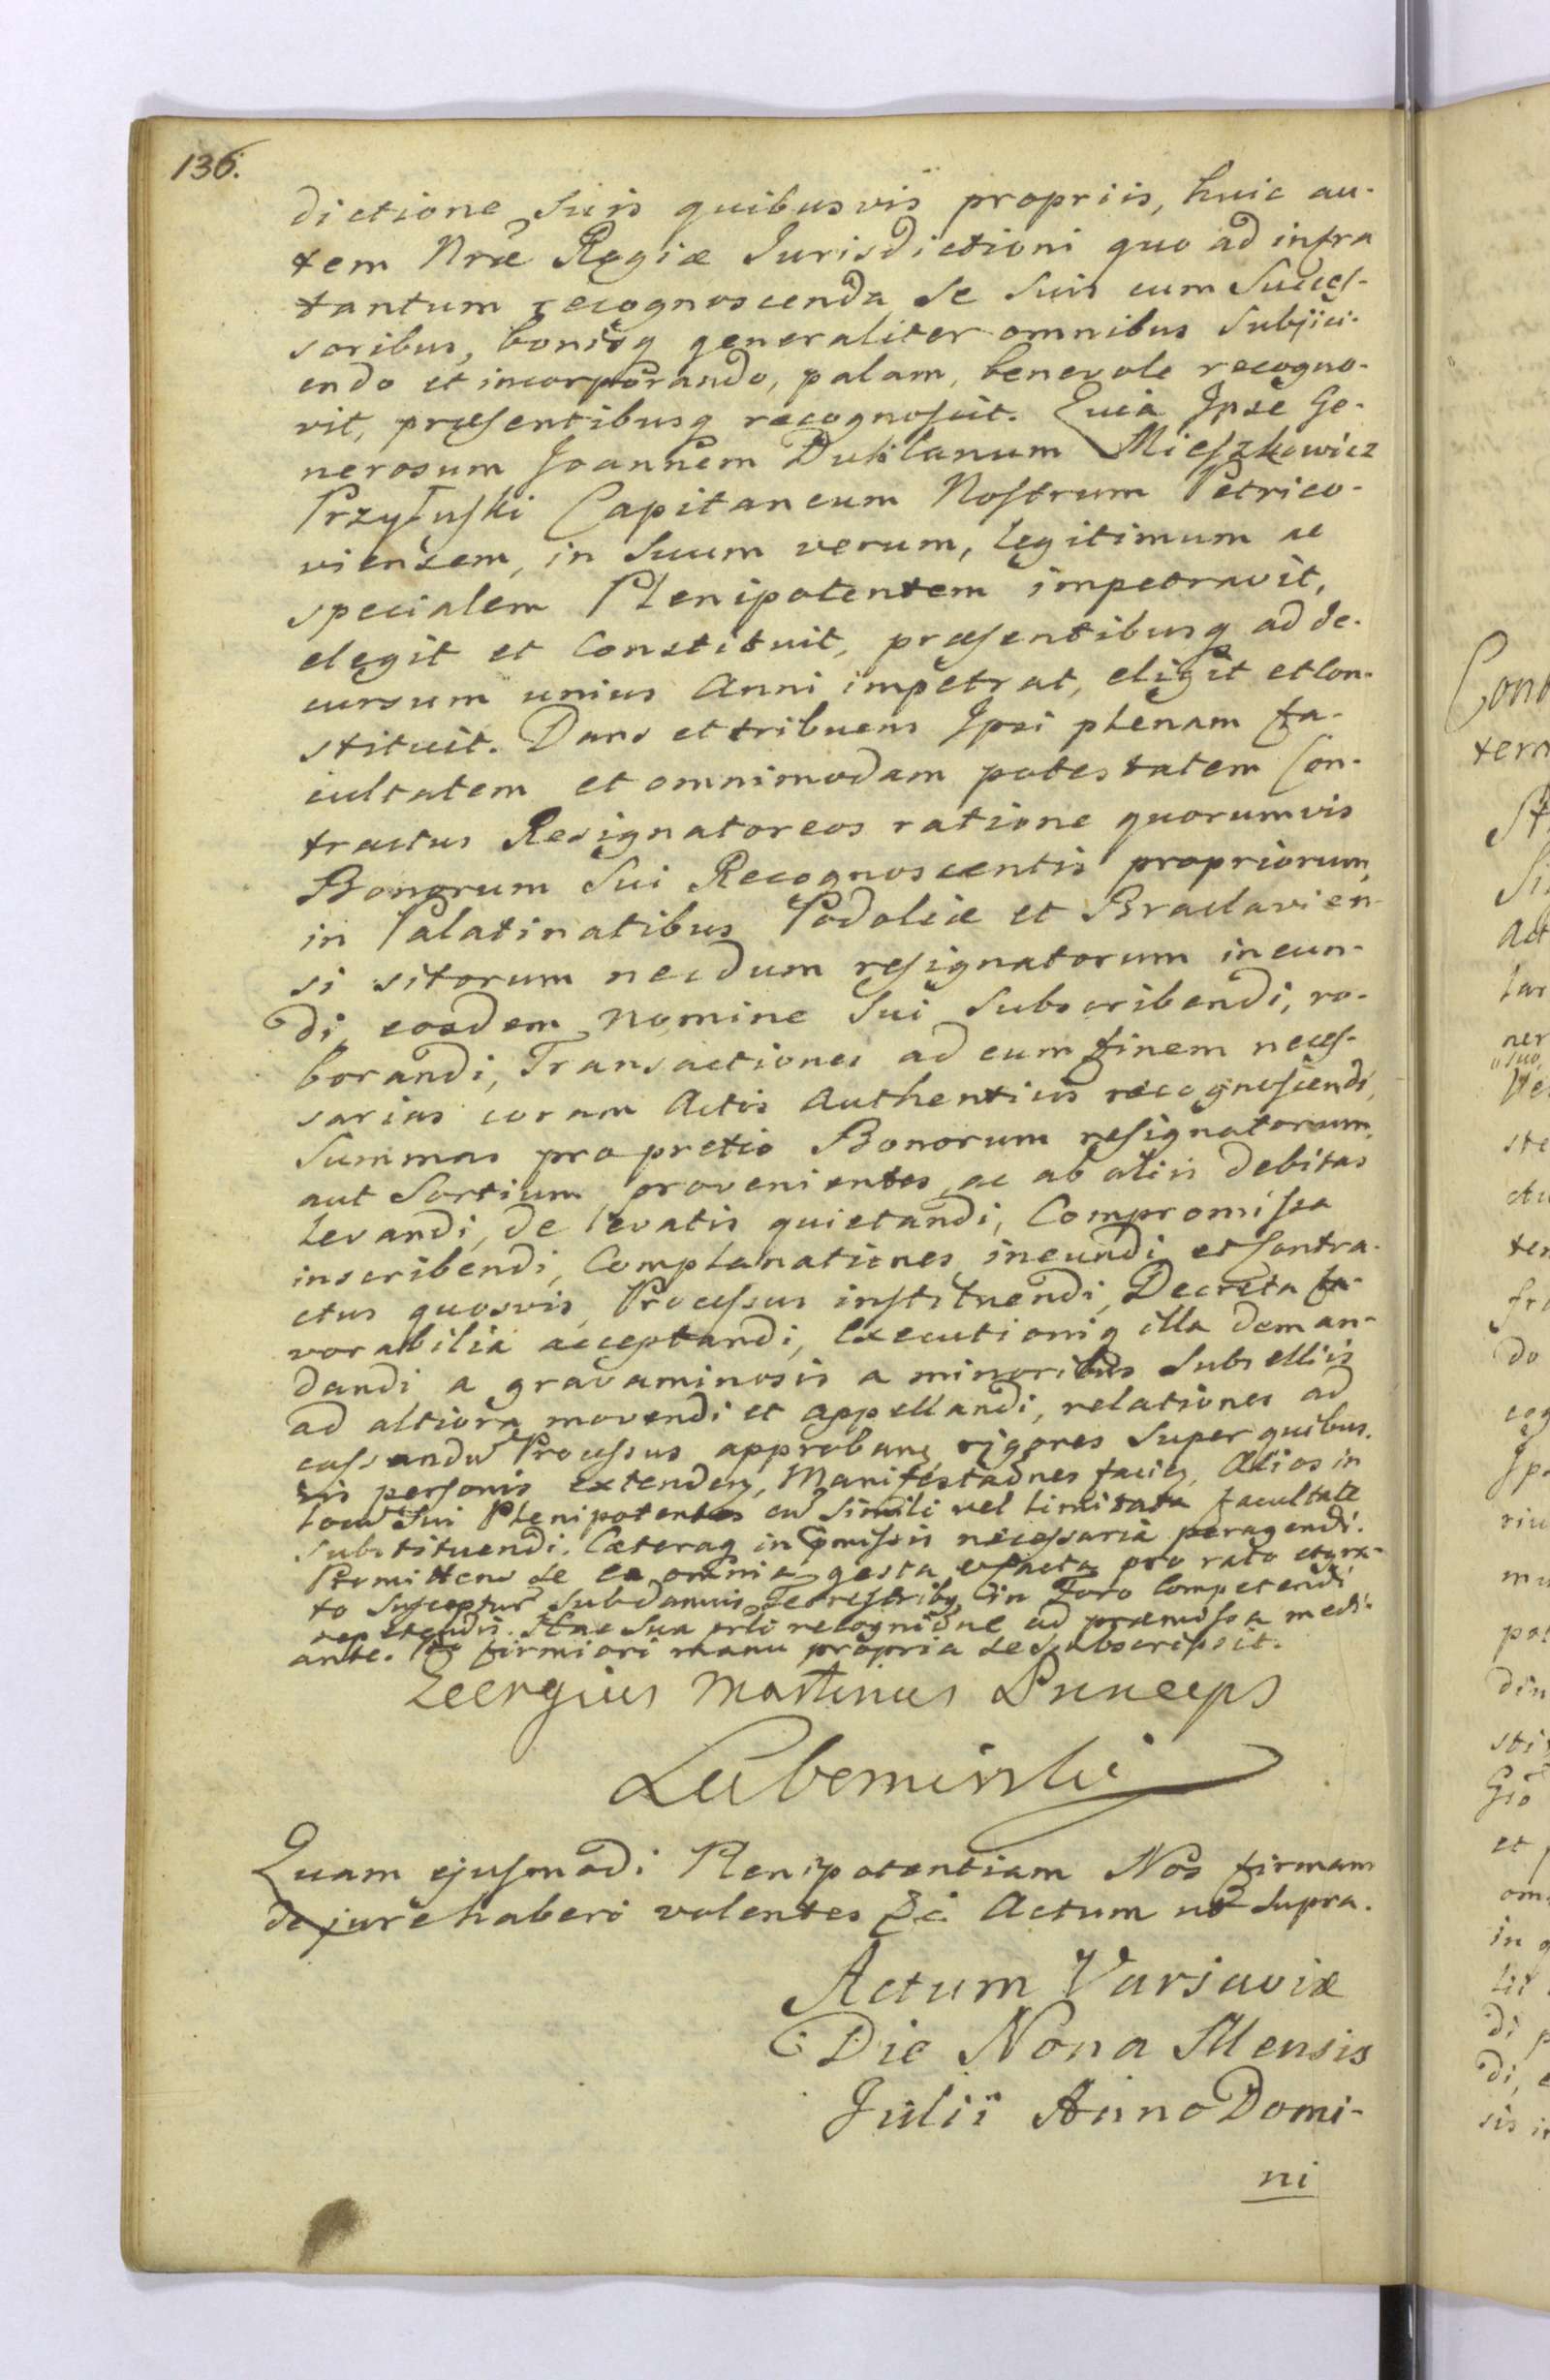 136.
dictione suis quibusvis propriis, huic au-
tem Nrae Regiae Jurisdictioni quo ad infra
tantum recognoscenda se suis cum succes-
soribus, bonisq generaliter omnibus subjici-
endo et incorporando, palam, benevole recogno-
vit, praesentibusq recognoscit. Quia Ipse Ge-
nerosum Joannem Duklanum Mieszkowicz
Przyłuski Capitaneum Nostrum Petrico-
viensem, in suum verum, legitimum ac
specialem Plenipotentem impetravit,
elegit et Constituit, praesentibusq ad de-
cursum unius Anni impetrat, eligit et Con-
stituit. Dans et tribuens Ipsi plenam fa-
cultatem et omnimodam potestatem Con-
tractus Resignatoreos ratione quorumvis
Bonorum sui Recognoscentis propriorum,
in Palatinatibus Podoliae et Braclavien-
si sitorum necdum resignatorum ineun-
di, eosdem nomine sui subscribendi, ro-
borandi, Transactiones ad eum finem neces-
sarias coram Actis Authenticis recognoscendi,
Summas pro pretio Bonorum resignatorum,
aut sortium provenientes, ac ab aliis debitas
levandi, de levatis quietandi, Compromissa
inscribendi, Complanationes ineundi et Contra-
ctus quosvis, Processus instituendi, Decreta fa-
vorabilia acceptandi, Executioniq illa deman-
dandi a gravaminosis a minoribus subselliis
ad altiora movendi et appellandi, relationes ad
cassandū Processus approbanđ, rigores super quibus-
vis personis extendenđ, Manifestaōnes facienđ, Alios in
locū sui Plenipotentes cū simili vel limitata facultate
substituendi. Caeteraq in pmissis necessaria peragendi.
Promittens se ea omnia gesta et facta pro rato et gra-
to suscepturū sub damnis Terrestribq in Foro Competenti
repetendis. Hac sua prti recogniōne ad praemissa medi-
ante. Pro firmiori manu propria se subscripsit.
Georgius Martinus Princeps
Lubomirski
Quam ejusmodi Plenipotentiam Nos firmam
de jure haberi volentes &c Actum ut supra.
Actum Varsaviae
Die Nona Mensis
Julii Anno Domi-
ni